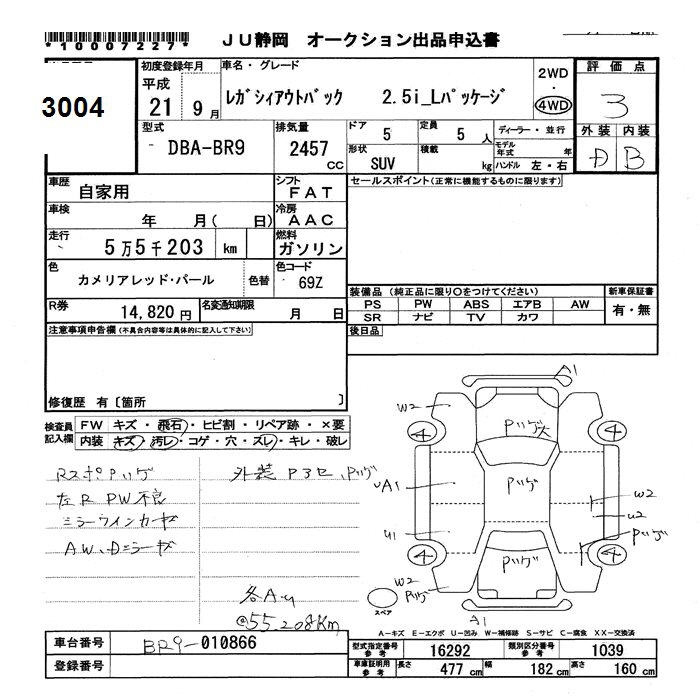 *10007227*
JU静岡 オークション出品申込書
3004
初度登録年月
平成
21 9月
車名・グレード
レガシィアウトバック 2.5i_Lパッケージ
2WD
・
4WD
評価点
3
型式
DBA-BR9
排気量
2457 CC
ドア 5
定員 5 人
形状 SUV
積載 kg
ディーラー・並行
モデル年式 年
ハンドル 左・右
外装 内装
D B
車歴 自家用
シフト FAT
セールスポイント(正常に機能するものに限ります)
車検 年 月( 日)
冷房 AAC
走行 5万5千203 km
燃料 ガソリン
色 カメリアレッド・パール
色替
色コード 69Z
装備品 (純正品に限り○をつけてください)
新車保証書
PS PW ABS エアB AW
SR ナビ TV カワ
有・無
R券 14,820円
名変通知期限 月 日
後日品
注意事項申告欄(不具合内容等は具体的に記入して下さい)
修復歴 有〔箇所 〕
検査員記入欄
FW キズ・飛石・ヒビ割・リペア跡・×要
内装 キズ・汚レ・コゲ・穴・スレ・キレ・破レ
RスポPハゲ
左R PW不良
ミラーウインカーヤセ
AW、Dミラーキズ
外装 Pヨセ、Pハゲ
各AU
@55.208Km
A1
W2
4
4
Pハゲ大
Pハゲ
UA1
U1
W2
U2
Pハゲ
4
4
W2
Pハゲ
Pハゲ
A1
スペア
A-キズ E-エクボ U-凹み W-補修跡 S-サビ C-腐食 XX-交換済
車台番号 BR9-010866
登録番号
型式指定番号 参考 16292
類別区分番号 参考 1039
車庫証明用 参考
長さ 477 cm
幅 182 cm
高さ 160 cm